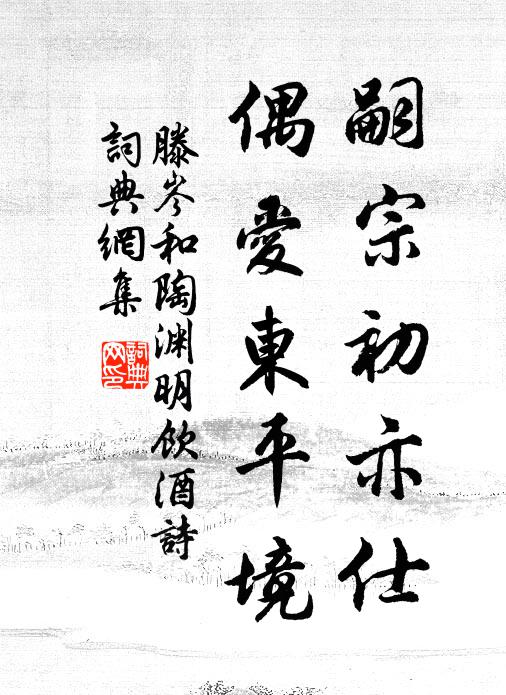 嗣宗初亦仕
偶愛東平境
滕岑和陶淵明飲酒詩
詞典網集
詞典
网印